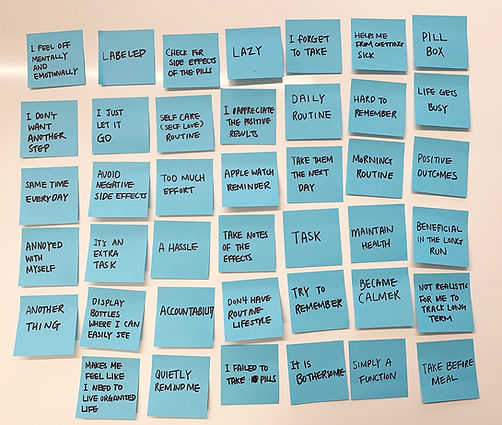 I FEEL OFF
MENTALLY
AND
EMOTIONALLY
LABELED
CHECK FOR
SIDE EFFECTS
OF THE PILLS
LAZY
I FORGET
TO TAKE
HELPS ME
FROM GETTING
SICK
PILL
BOX
I DON'T
WANT
ANOTHER
STEP
I JUST
LET IT
GO
SELF CARE
(SELF LOVE)
ROUTINE
I APPRECIATE
THE POSITIVE
RESULTS
DAILY
ROUTINE
HARD TO
REMEMBER
LIFE GETS
BUSY
SAME TIME
EVERYDAY
AVOID
NEGATIVE
SIDE EFFECTS
TOO MUCH
EFFORT
APPLE WATCH
REMINDER
TAKE THEM
THE NEXT
DAY
MORNING
ROUTINE
POSITIVE
OUTCOMES
ANNOYED
WITH
MYSELF
IT'S AN
EXTRA
TASK
A HASSLE
TAKE NOTES
OF THE
EFFECTS
TASK
MAINTAIN
HEALTH
BENEFICIAL
IN THE LONG
RUN
ANOTHER
THING
DISPLAY
BOTTLES
WHERE I CAN
EASILY SEE
ACCOUNTABILITY
DON'T HAVE
ROUTINE-
LIFESTYLE
TRY TO
REMEMBER
BECAME
CALMER
NOT REALISTIC
FOR ME TO
TRACK LONG
TERM
MAKES ME
FEEL LIKE
I NEED TO
LIVE ORGANIZED
LIFE
QUIETLY
REMIND ME
I FAILED TO
TAKE PILLS
IT IS
BOTHERSOME
SIMPLY A
FUNCTION
TAKE BEFIRE
MEAL